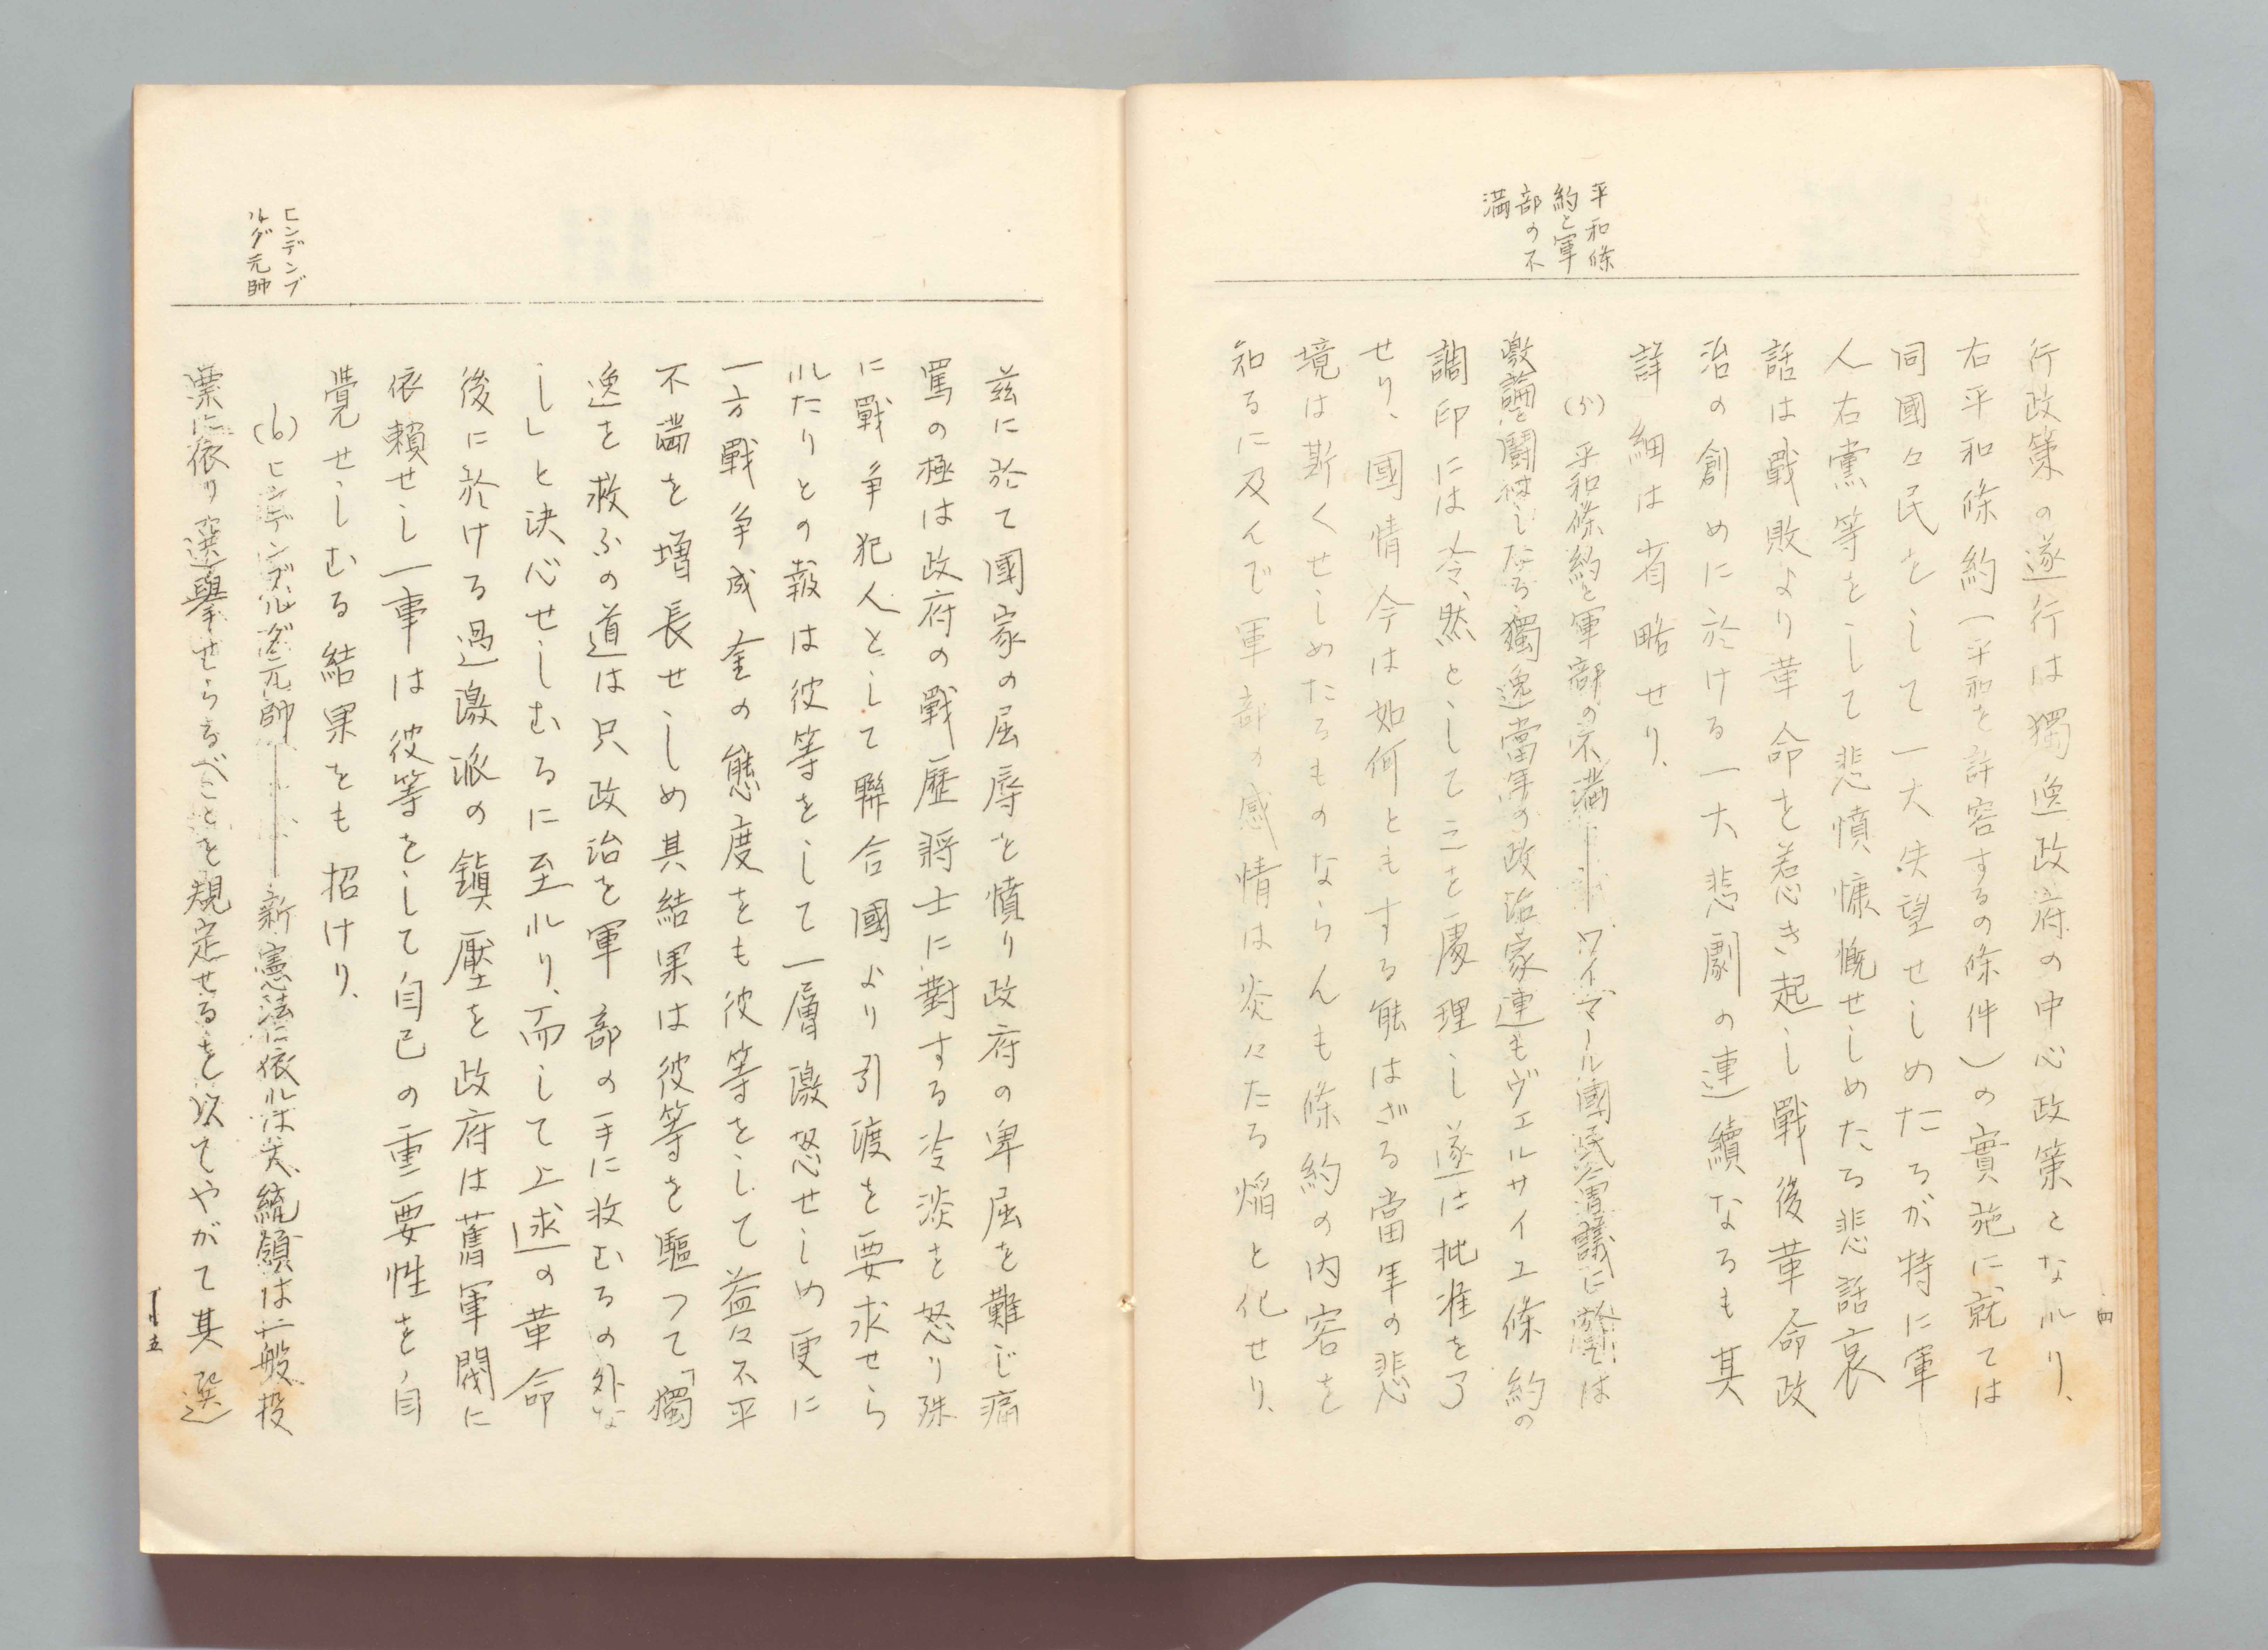 平和條
約と軍
部の不
満
行政策の遂行は獨逸政府の中心政策となれり、
右平和條約(平和を許容するの條件)の實施に就ては
同國々民をして一大失望せしめたるが特に軍
人右黨等をして悲憤慷慨せしめたる悲話哀
話は戰敗より革命を惹き起し戰後革命政
治の創めに於ける一大悲劇の連續なるも其
詳細は省略せり、
(5) 平和條約と軍部の不満――ワイマール國民會議に於ては
激論を鬪はしたる獨逸當年の政治家連もヴェルサイユ條約の
調印には冷然として之を處理し遂は批准を了
せり、國情今は如何ともする能はざる當年の悲
境は斯くせしめたるものならんも條約の内容を
知るに及んで軍部の感情は炎々たる焔と化せり、
四
ヒンデンブ
ルグ元帥
茲に於て國家の屈辱を憤り政府の卑屈を難じ痛
罵の極は政府の戰歷將士に對する冷淡を怒り殊
に戰爭犯人として聯合國より引渡を要求せら
れたりとの報は彼等をして一層激怒せしめ更に
一方戰爭成金の態度をも彼等をして益々不平
不満を增長せしめ其結果は彼等を驅つて「獨
逸を救ふの道は只政治を軍部の手に收むるの外な
し」と決心せしむるに至れり、而して上述の革命
後に於ける過激派の鎭壓を政府は舊軍閥に
依賴せし一事は彼等をして自己の重要性を自
覺せしむる結果をも招けり、
(6) ヒンデンブルグ元帥――新憲法に依れば大統領は一般投
票に依り選擧せらるべことを規定せるを以てやがて其選
五